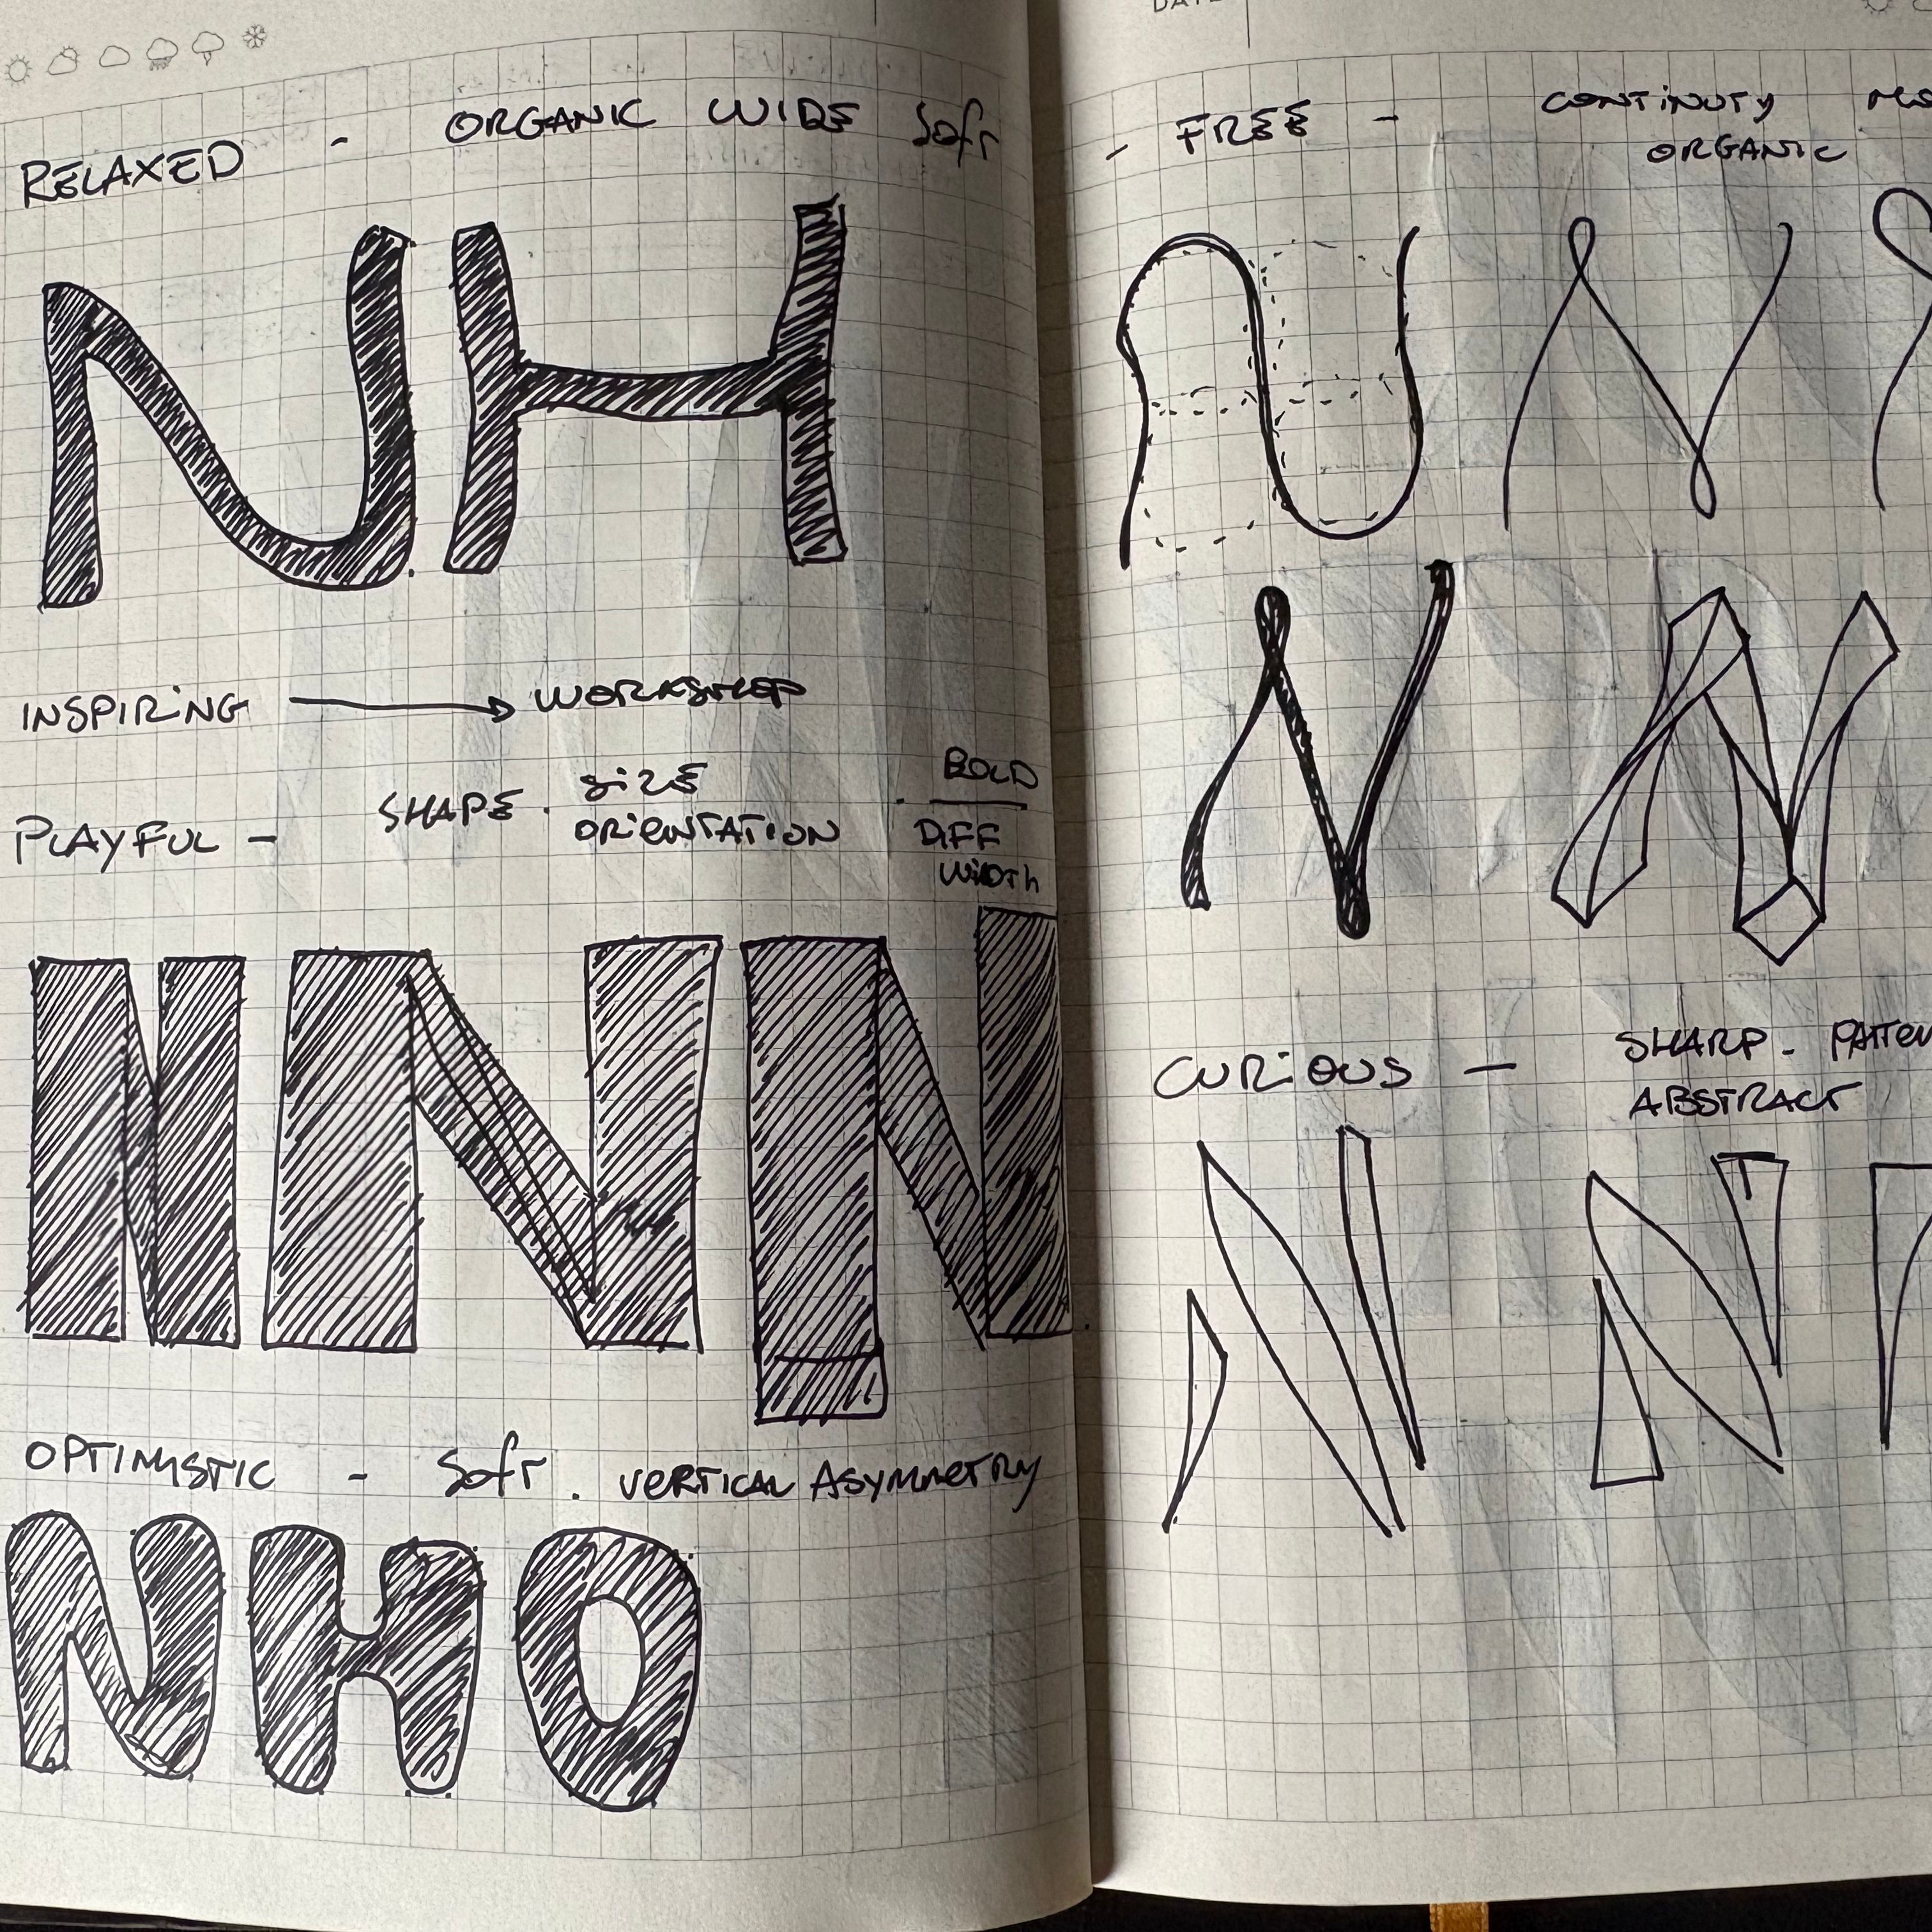 RELAXED - ORGANIC WIDE Soft
NH
INSPIRING → WORKSHOP
PLAYFUL - SHAPE . SIZE . BOLD
ORIENTATION DIFF
WIDTH
N N N
OPTIMISTIC - Soft . VERTICAL ASYMMETRY
NHO
- FREE - CONTINUTY
ORGANIC
N N
N N
CURIOUS - SHARP - PATTE
ABSTRACT
N N